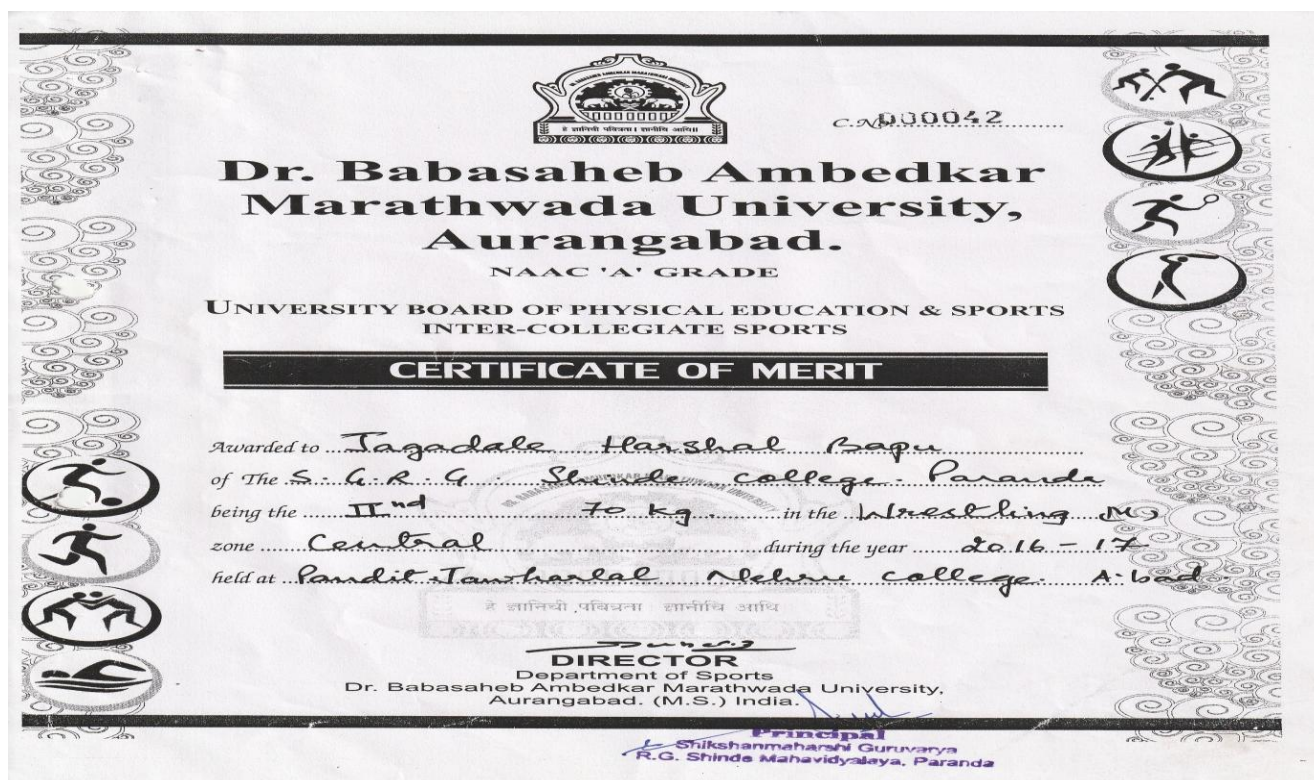 हे ज्ञानियी पवित्रता। ज्ञानीयि आथि॥
C.No 000042
Dr. Babasaheb Ambedkar
Marathwada University,
Aurangabad.
NAAC 'A' GRADE
UNIVERSITY BOARD OF PHYSICAL EDUCATION & SPORTS
INTER-COLLEGIATE SPORTS
CERTIFICATE OF MERIT
Awarded to Jagadale Harshal Bapu
of The S.G.R.G. Shinde college. Paranda
being the IInd 70 Kg. in the Wrestling M
zone Central during the year 2016-17
held at Pandit Jawharlal Nehru college. A.bad
हे ज्ञानियी पवित्रता ज्ञानीयि आथि
DIRECTOR
Department of Sports
Dr. Babasaheb Ambedkar Marathwada University,
Aurangabad. (M.S.) India.
Principal
Shikshanmaharshi Guruvarya
R.G. Shinde Mahavidyalaya, Paranda